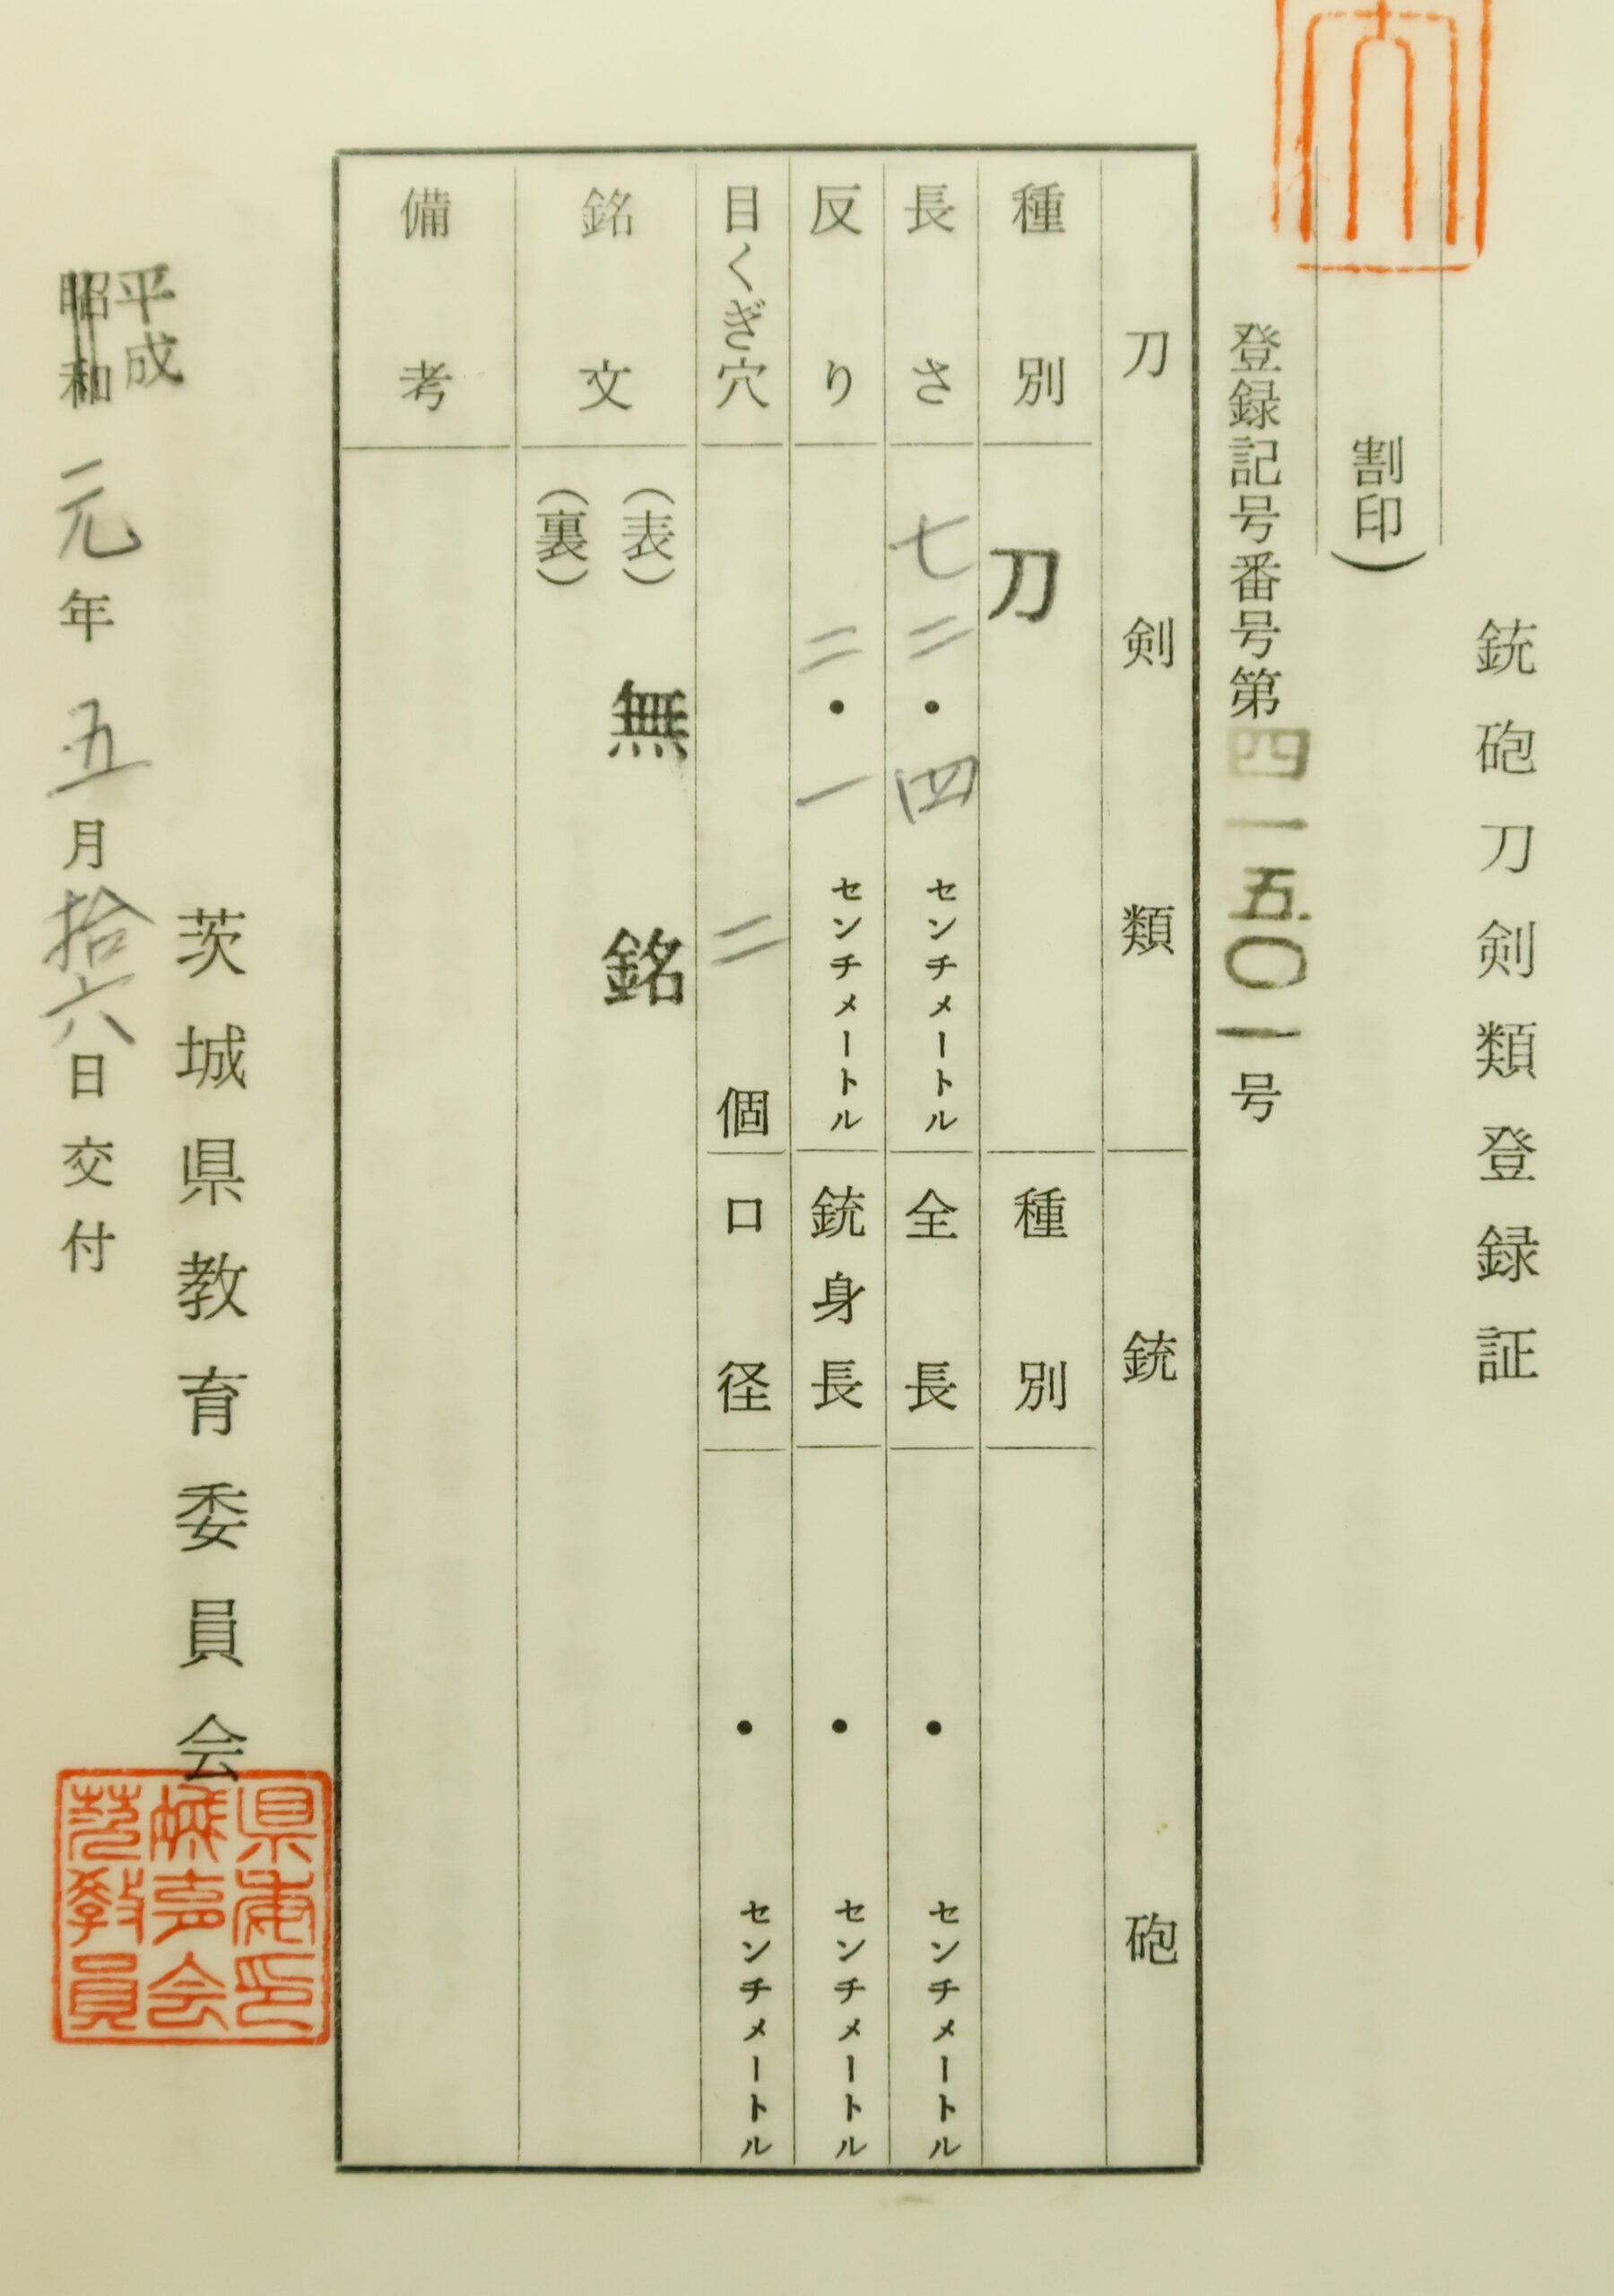 銃砲刀剣類登録証
割印)
登録記号番号第四一五〇一号
刀剣類
銃砲
種別
刀
種別
長さ
七二・四センチメートル
全長
・センチメートル
反り
二・一センチメートル
銃身長
・センチメートル
目くぎ穴
二個
口径
・センチメートル
銘文
(表)無銘
(裏)
備考
茨城県教育委員会
平成
昭和元年五月拾六日交付